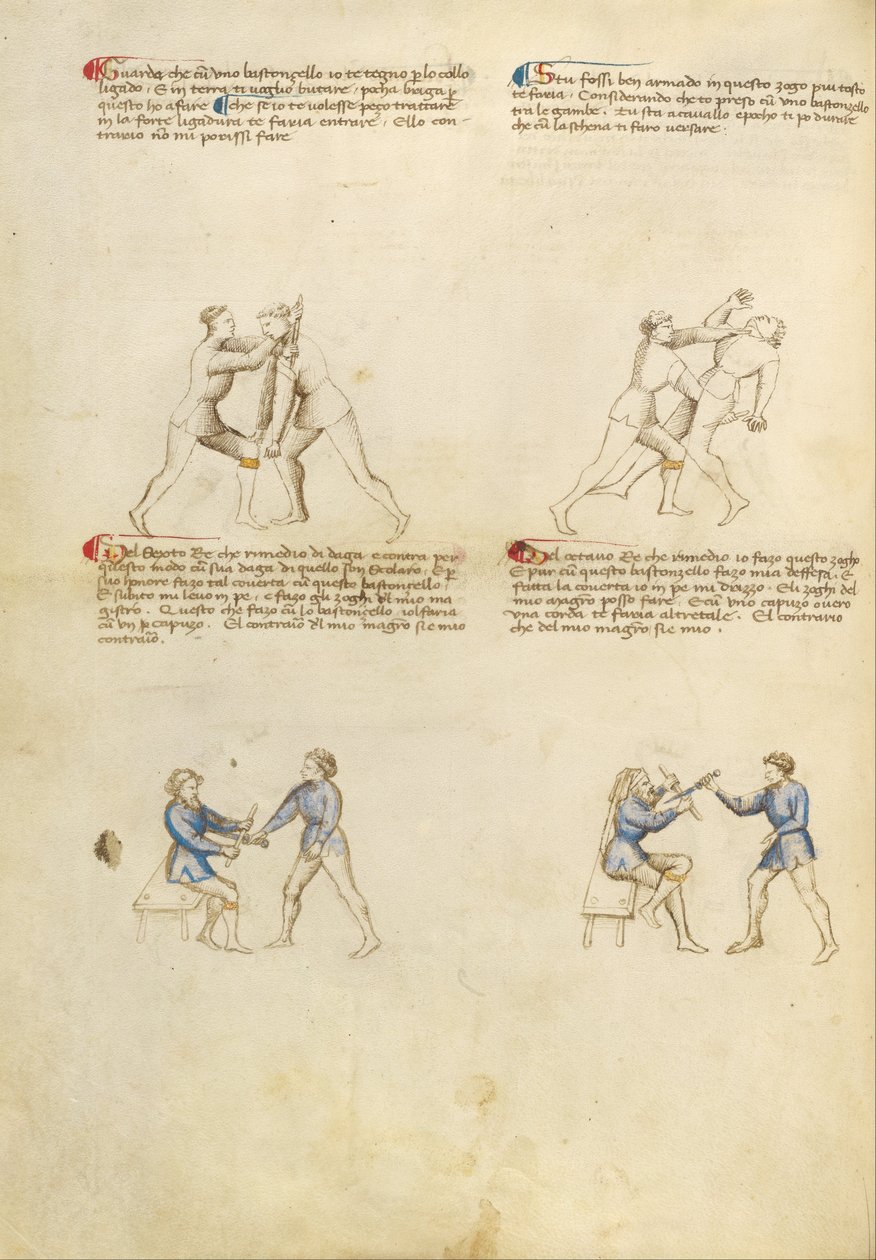 Guarda che cũ uno bastonçello io te tegno p lo collo
ligado, E in terra ti voglio butare, pocha briga p
questo ho a fare che se io te volesse peço trattare
in la forte ligadura te faria entrare, E llo con-
trario nõ mi porissi fare
Stu fossi ben armado in questo zogo piu tosto
te faria, Considerando che to preso cũ uno bastonzello
tra le gambe. Tu sta a cavallo e pocho ti po durare
che cũ la schena ti faro versare.
Del Sexto Re che rimedio di daga e contra per
questo modo cũ sua daga di quello son Scolaro. E p
suo honore fazo tal coverta cũ questo bastoncello,
E subito mi levo in pe, e fazo gli zoghi dl mio ma
gistro. Questo che fazo cũ lo bastonçello, iol faria
cũ un capuzo. El contraiõ dl mio magrõ sie mio
contraiõ.
Del octavo Re che rimedio io fazo questo zogho
E pur cũ questo bastonzello fazo mia deffesa. E
fatta la coverta io in pe mi drizzo. E li zoghi del
mio magrõ posso fare. E cũ uno capuzo overo
una corda te faria altretale. El contrario
che del mio magrõ sie mio.